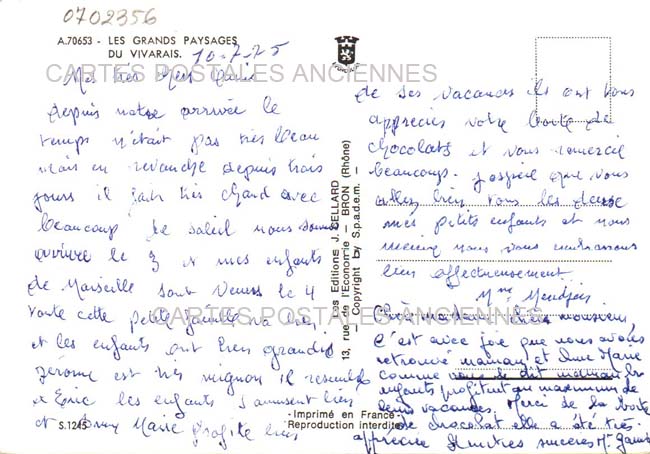 0702356
A.70653 - LES GRANDS PAYSAGES
DU VIVARAIS.
10-7-75
CARTES POSTALES ANCIENNES
Mes très chers amis
depuis notre arrivée le
temps n'était pas très beau
mais en revanche depuis trois
jours il fait très chaud avec
beaucoup de soleil nous sommes
arrivée le 3 et mes enfants
de Marseille sont venus le 4
toute cette petite famille va bien
et les enfants ont bien grandis
Jérome est très mignon il ressemble
a Eric les enfants s'amusent bien
et Anne Marie profite bien
S.1245
13, rue de l'Economie - BRON (Rhône)
Les Editions J. CELLARD
Copyright by S.p.a.d.e.m. -
-Imprimé en France-
Reproduction interdite
de ses vacances ils ont tous
appreciés votre boite de
chocolats et vous remercie
beaucoup. J'espère que vous
allez bien tous les deux
mes petits enfants et nous
même nous vous embrassons
bien affectueusement
Mme
CARTES POSTALES ANCIENNES
Chère madame, cher monsieur
C'est avec joie que nous avons
retrouvé maman et Anne Marie
comme vous le dit maman les
enfants profitent au maximum de
leurs vacances. Merci de la boite
de chocolat elle a été très
appréciée sincères